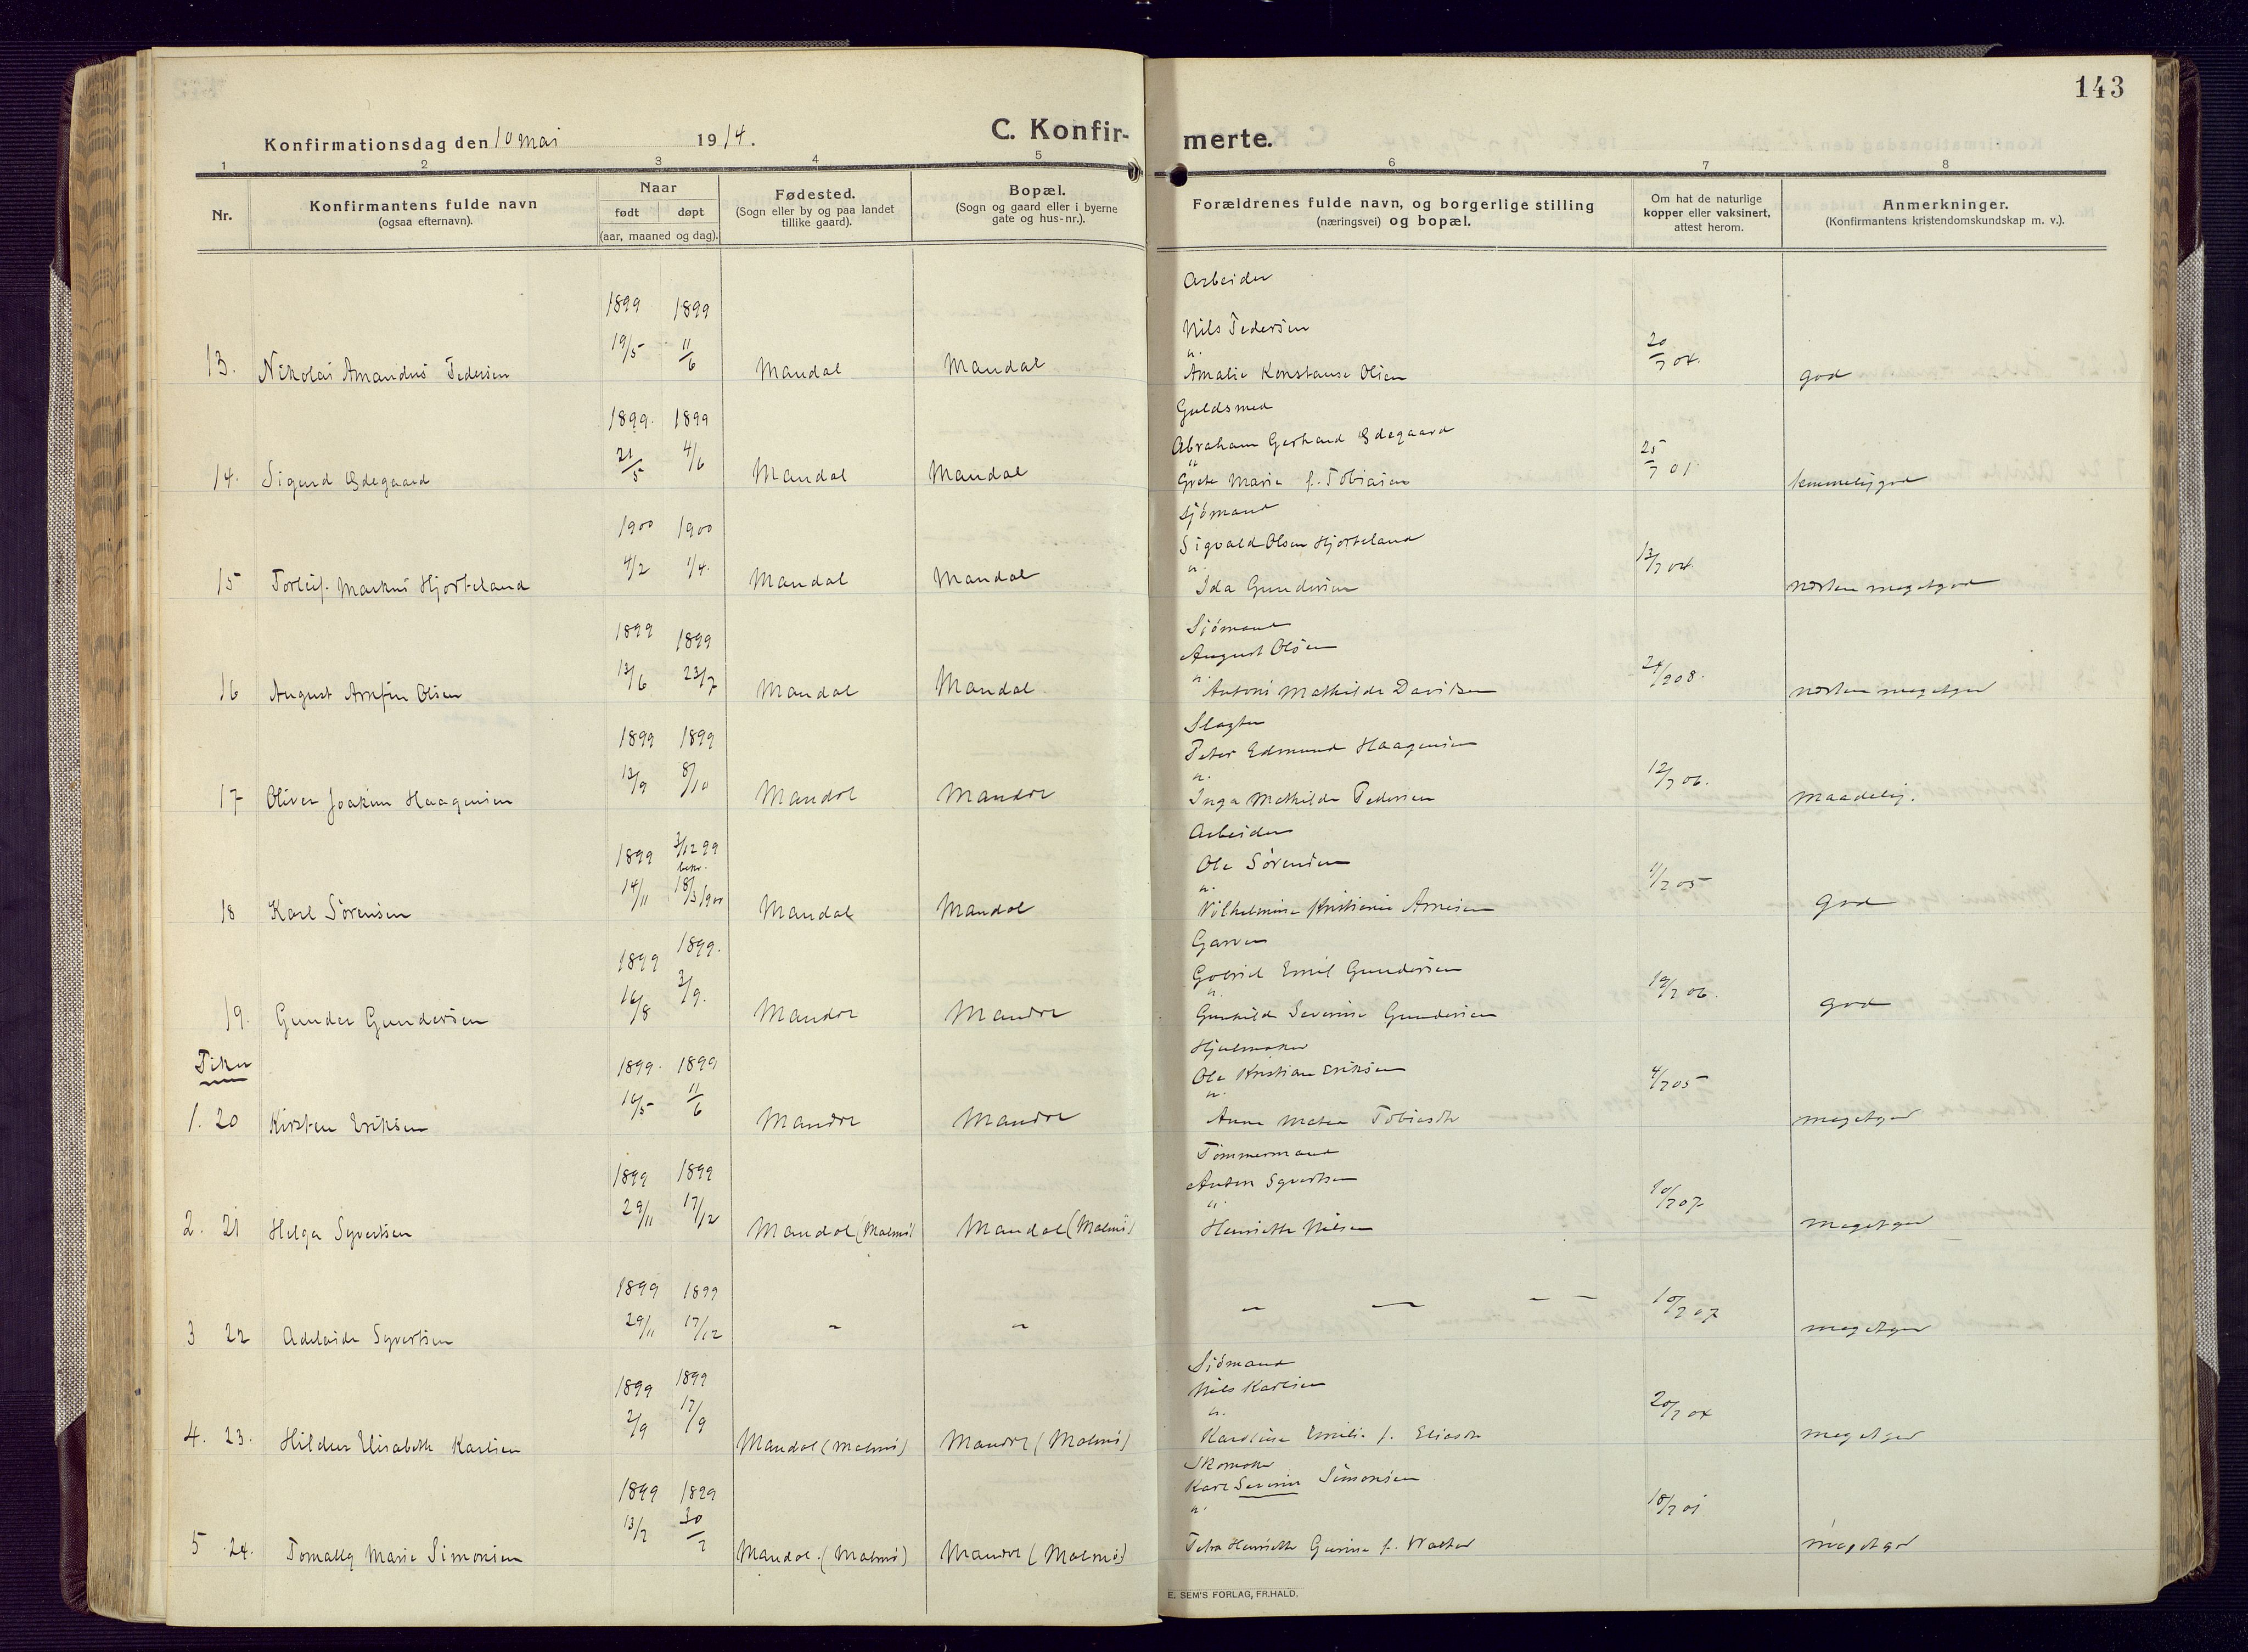 143
Konfirmationsdag den 10 mai 1914.
C. Konfir-
merte.
1 2 3 4 5 6 7 8
Nr.
Konfirmantens fulde navn
(ogsaa efternavn).
Naar
født døpt
(aar, maaned og dag).
Fødested.
(Sogn eller by og paa landet
tillike gaard).
Bopæl.
(Sogn og gaard eller i byerne
gate og hus-nr.).
Forældrenes fulde navn, og borgerlige stilling
(næringsvei) og bopæl.
Om hat de naturlige
kopper eller vaksinert,
attest herom.
Anmerkninger.
(Konfirmantens kristendomskundskap m. v.).
Arbeider
1899 1899
Nils Pedersen
19/5 11/6
20/7 04.
13. Nikolai Amandus Pedersen Mandal Mandal
Amalie Konstanse Olsen god
Guldsmed
1899. 1899
Abraham Gerhard Ødegaard
21/5 4/6
25/7 01.
14. Sigurd Ødegaard Mandal Mandal
Grete Marie f. Tobiasen temmelig god
Sjömand
1900 1900
Sigvald Olsen Hjorteland
4/2 1/4. 13/7 04.
15 Torleif Markus Hjorteland Mandal Mandal
Ida Gundersen næsten meget god
Sjömand
1899 1899
August Olsen
13/6 23/7
16 August Arnfin Olsen Mandal Mandal
Antoni Mathilde Davidsen næsten meget god
Slagter
1899 1899
Peter Edmund Haagensen
13/9 8/10 12/7 06.
17 Oliver Joakim Haagensen Mandal Mandal
Inga Mathilde Pedersen maadelig.
Arbeider
1899 3/12 99
Ole Sörensen
14/11 18/3 1900 1/7 05
18 Karl Sörensen Mandal Mandal
Vilhelmine Kristiane Arnesen god
Garver
1899 1899.
Gabriel Emil Gundersen
16/8 3/9. 19/7 06.
19. Gunder Gundersen Mandal Mandal
Gunhilde Severine Gundersen god
Piker
Hjulmaker
1899. 1899
Ole Kristian Eriksen
16/5 11/6 4/7 05
1. 20 Kirsten Eriksen Mandal Mandal
Anne Tobiasdtr meget god
Tömmermand
1899 1899
Anton Syvertsen
29/11 17/12 10/7 07
2. 21 Helga Syvertsen Mandal (Malmö) Mandal (Malmö)
Henriette Nilsen meget god
1899 1899
29/11 17/12 10/7 07
3 22 Adelaide Syvertsen meget god
Sjömand
1899 1899
Nils Karlsen
2/9 17/9 20/7 04
4. 23. Hildur Elisabeth Karlsen Mandal (Malmö) Mandal (Malmö)
Karoline Emilie f. Eliasdtr meget god
Skomaker
1899 1899
Karl Severin Simonsen
13/7 30/7 18/7 01
5 24. Tomally Marie Simonsen Mandal. (Malmö) Mandal (Malmö)
Petra Henriette f. meget god
E. SEM'S FORLAG, FR.HALD.